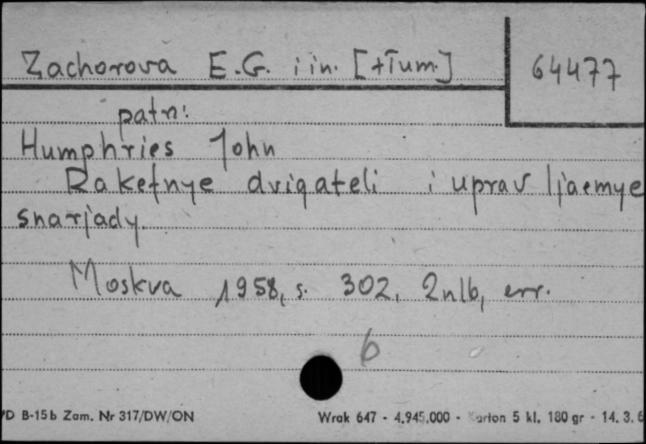 Zachorova E.G. i in. [+Tum.]
64477
patrz:
Humphries John
Raketnye dvigateli i upravljaemye
snarjady.
Moskva 1958, s. 302, 2nlb, err.
6
D B-15b Zam. Nr 317/DW/ON
Wrok 647 - 4.945.000 - Karton 5 kl. 180 gr - 14. 3. 6